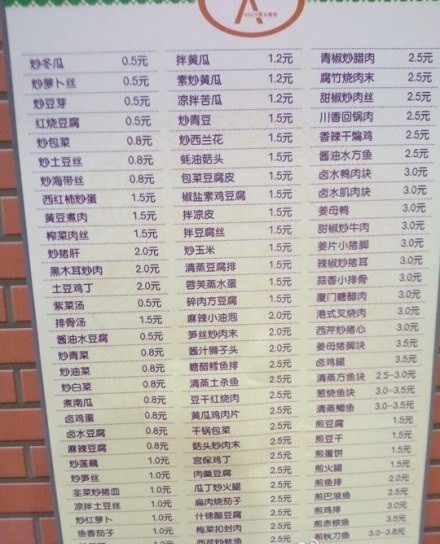 炒冬瓜 0.5元
炒萝卜丝 0.5元
炒豆芽 0.5元
红烧豆腐 0.5元
炒包菜 0.8元
炒土豆丝 0.8元
炒海带丝 0.8元
西红柿炒蛋 1.5元
黄豆煮肉 1.5元
榨菜肉丝 1.5元
炒猪肝 2.0元
黑木耳炒肉 2.0元
土豆鸡丁 2.0元
紫菜汤 0.5元
排骨汤 1.5元
酱油水豆腐 0.5元
炒青菜 0.8元
炒油菜 0.8元
炒白菜 0.8元
煮南瓜 0.8元
卤鸡蛋 0.8元
卤水豆腐 0.8元
麻辣豆腐 0.8元
炒莲藕 1.0元
炒笋丝 1.0元
韭菜炒猪血 1.0元
凉拌土豆丝 1.0元
炒红萝卜 1.0元
鱼香茄子 1.0元
拌黄瓜 1.2元
素炒黄瓜 1.2元
凉拌苦瓜 1.2元
炒青豆 1.5元
炒西兰花 1.5元
蚝油菇头 1.5元
包菜豆腐皮 1.5元
椒盐素鸡豆腐 1.5元
拌凉皮 1.5元
拌豆腐丝 1.5元
炒玉米 1.5元
清蒸豆腐排 1.5元
蓉芙蒸水蛋 1.5元
碎肉方豆腐 1.5元
麻辣小油泡 2.0元
笋丝炒肉末 2.0元
酱汁狮子头 2.0元
糖醋鳕鱼排 2.5元
清蒸土杀鱼 2.5元
豆干红烧肉 2.5元
黄瓜鸡肉片 2.5元
干锅包菜 2.5元
菇头炒肉末 2.5元
宫保鸡丁 2.5元
肉羹豆腐 2.5元
瓜丁炒火腿 2.5元
扁肉烧茄子 2.5元
什锦酿豆腐 2.5元
梅菜扣封肉 2.5元
西芹炒鱿鱼 2.5元
青椒炒腊肉 2.5元
腐竹烧肉末 2.5元
甜椒炒肉丝 2.5元
川香回锅肉 2.5元
香辣干煸鸡 2.5元
酱油水方鱼 2.5元
卤水鸭肉块 3.0元
卤水肌肉块 3.0元
姜母鸭 3.0元
甜椒炒牛肉 3.0元
姜片小猪脚 3.0元
辣椒炒猪耳 3.0元
蒜香小排骨 3.0元
厦门糖醋肉 3.0元
港式叉烧肉 3.0元
西芹炒猪心 3.0元
姜母猪脚块 3.5元
卤鸡腿 3.5元
清蒸方鱼块 2.5-3.0元
葱烧鱼块 3.0-3.5元
清蒸鲫鱼 3.0-3.5元
煎豆腐 1.5元
煎豆干 1.5元
煎蛋饼 1.5元
煎火腿 1.5元
煎鱼排 2.0元
煎巴浪鱼 2.5元
煎鸡排 3.0元
煎赤棕鱼 3.5元
煎秋刀鱼 3.0-3.8元